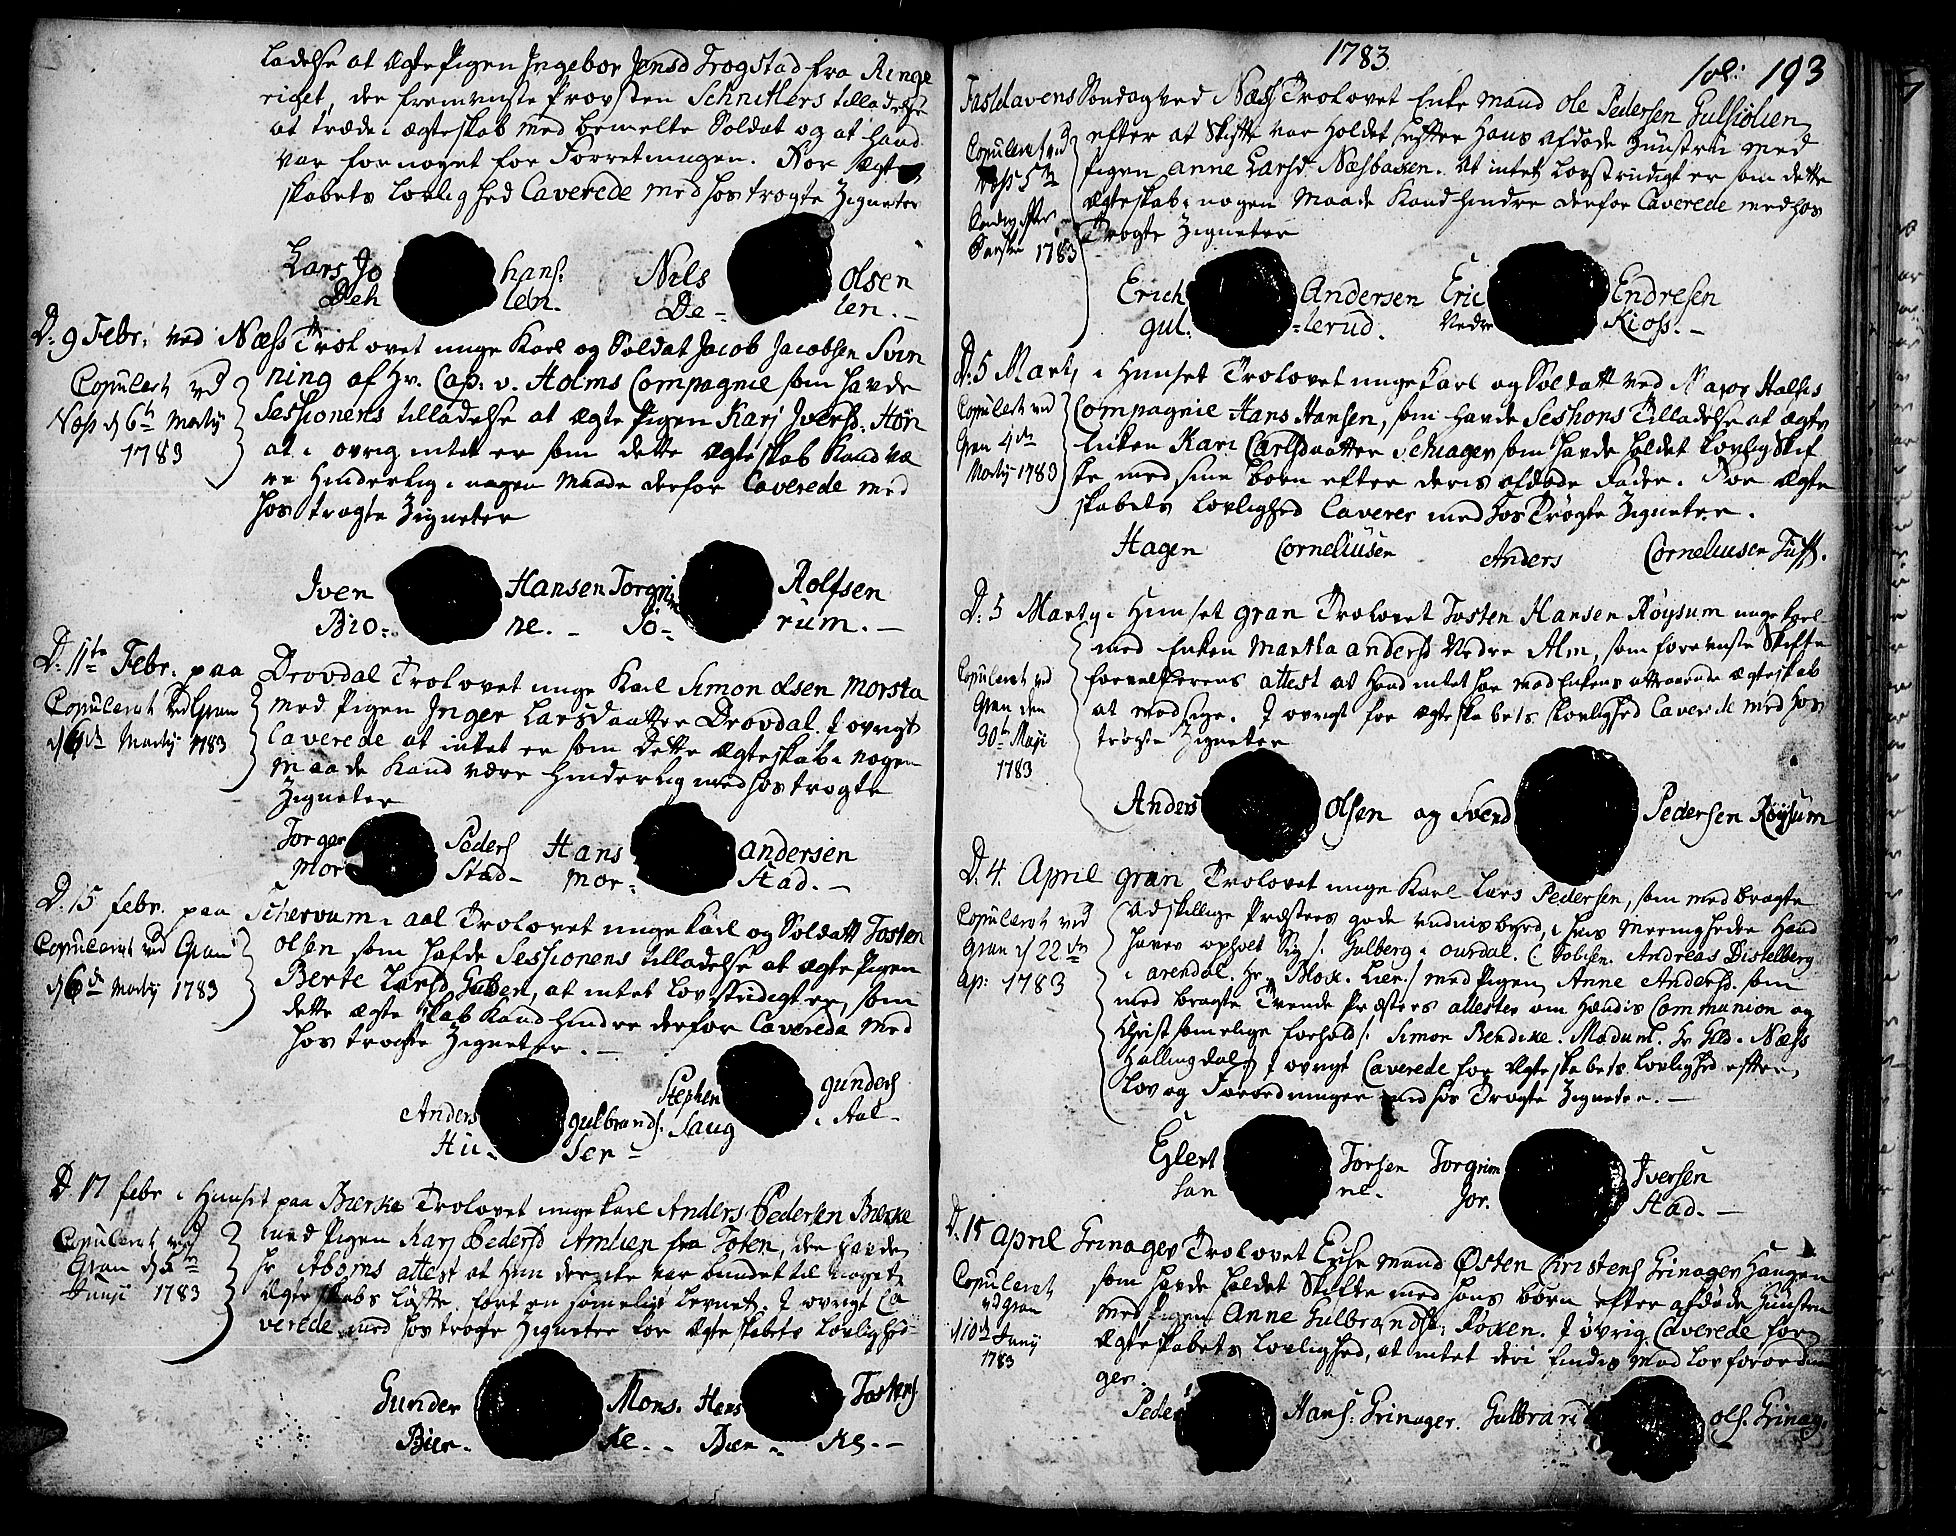 ladelse at ægte Pigen Ingebor Jensd Trogstad fra Ringe
riget, der fremviiste Provsten Schnitlers tilladelse
at træde i ægteskab med bemelte Soldat og at hand
var fornøyet for Forretningen. For Ægte
skabets Lovlighed Caverede med hos trögte Zigneter
Lars Jo hans. Nils Olsen
Deh len. De- len.-
D: 9 Febr: ved Næss Trolovet unge Karl og Soldat Jacob Jacobsen Svin
ning af Hr. Cap: v. Holms Compagnie som havde
Sessionens tilladelse at ægte Pigen Karj Iversd. Hön
at i övrig intet er som dette Ægteskab Kand væ
re Hinderlig i nogen Maade derfor Caverede med
hos trögte Zigneter
Copuleret ved
Næss d 6te Martij
1783
Iven Hansen Torgrim Rolfsen
Bio- ne.- So- rum.-
D: 11te Febr. paa Drovdal Trolovet unge Karl Simon Olsen Morsta
med Pigen Inger Larsdaatter Drovdal. I øvrigt
Caverede at intet er som Dette Ægteskab i nogen
Maade Kand være Hinderlig med hos trögte
Zigneter
Copuleret ved Gran
Martij 1783
Torger Peders Hans Andersen
Mor Stad- Mor- Stad.-
D. 15 febr. paa Schervum i Aal Trolovet unge Karl og Soldatt Tosten
Olsen som hafde Sessionens tilladelse at ægte Pigen
Berte Larsd Guben, at intet lovstridigt er, som
dette ægteskab Kand hindre derfor Caverede med
hos trögte Zigneter.-
Copuleret ved Gran
Martij 1783
Anders Gulbrands. Stephen Gunders
Hu- Ser- Saug i Aal-
D 17 febr i Huuset paa Bierke Trolovet unge Karl Anders Pedersen Bierke
med Pigen Karj Pedersd Amlien fra Toten, der havde
Hr Aboms attest at Hun der ikke var bundet til noget
Ægteskabs Löfte, fört en sömeligt Levnet. I övrigt Ca
verede med hos trögte Zigneter for Ægteskabets Lovlighed-
Copuleret ved
Gran d 5te
Junji 1783
Gunder Mons. Hans Tostens
Bier- ke.- Bier- ke.-
1783
fol: 193
Fastelavens Søndag ved Næss Trolovet Enke Mand Ole Pedersen Gulhølien,
efter at Skifte var Holdet efter Hans afdøde Hustru med
Pigen Anne Larsd Næsbacken. At intet Lovstridigt er som dette
Ægteskab i nogen Maade Kand hindre derfor Caverede med hos
trögte Zigneter
Copuleret ved
Næss 5te
Søndag efter
Paaske 1783
Erich Andersen Eric Endresen
gul. -lerud. Nedre Kioss.-
D: 5 Martj i Huuset Trolovet unge Karl og Soldatt ved Major Halfis
Compagnie Hans Hansen, som havde Sessions Tilladelse at ægte
Enken Kari Carlsdaatter Schiager som havde holdet Lovlig Skif
te med sine Børn efter deris afdøde Fader. For Ægte
skabets Lovlighed Caverer med hos Trögte Zigneter.
Copuleret ved
Gran 4de
Martij 1783
Hagen Corneliusen Anders Corneliusen Tuff.
D: 5 Martij i Huuset Gran Trolovet Tosten Hansen Røysum unge Karl
med Enken Martha Andersd Nedre Alm, som foreviiste Skifte
forvalterens attest at Hand intet har mod Enkens attraaende Ægteskab
at modsige. I øvrigt for Ægteskabets Lovlighed Caverede med hos
trögte Zigneter
Copuleret ved
Gran den
30te Maji
1783
Anders Olsen og Svend Pedersen Røysum
D. 4. April Gran Trolovet unge Karl Lars Pedersen, som med bragte
adskillige Præsters gode vidnisbyrd, i hvis Meenigheder Hand
haver opholt Sig /: Gulberg i Ourdal. C Tobisen. Andreas Distelberg
i Arendal. Hr Blok. Lier :/ med Pigen Anne Andersd. som
med bragte Tvende Præsters attester om Hendis Communion og
Christsømelige forhold /: Simon Bendike. Modum. Hr Gld. Næss
Hallingdal :/ I øvrigt Caverede for Ægteskabets Lovlighed efter
Lov og Forordninger med hos Trögte Zigneter.-
Copuleret ved
Gran d 22de
Ap: 1783
Eglert Torsen Torgrim Iversen
San ne.- Jor. Stad.-
D. 15 April Grinager Trolovet Enke Mand Østen Kristens Grinager Haugen
som havde holdet Skifte med Hans børn efter afdøde Hustru
med Pigen Anne Gulbrandsd: Roken. I øvrig Caverede for
Ægteskabets Lovlighed, at intet deri findis mod Lov forordnin
ger.
Copuleret
ved Gran
d 10de Junij
1783
Peder Hans: Grinager. Gulbrand Ols. Grinag.